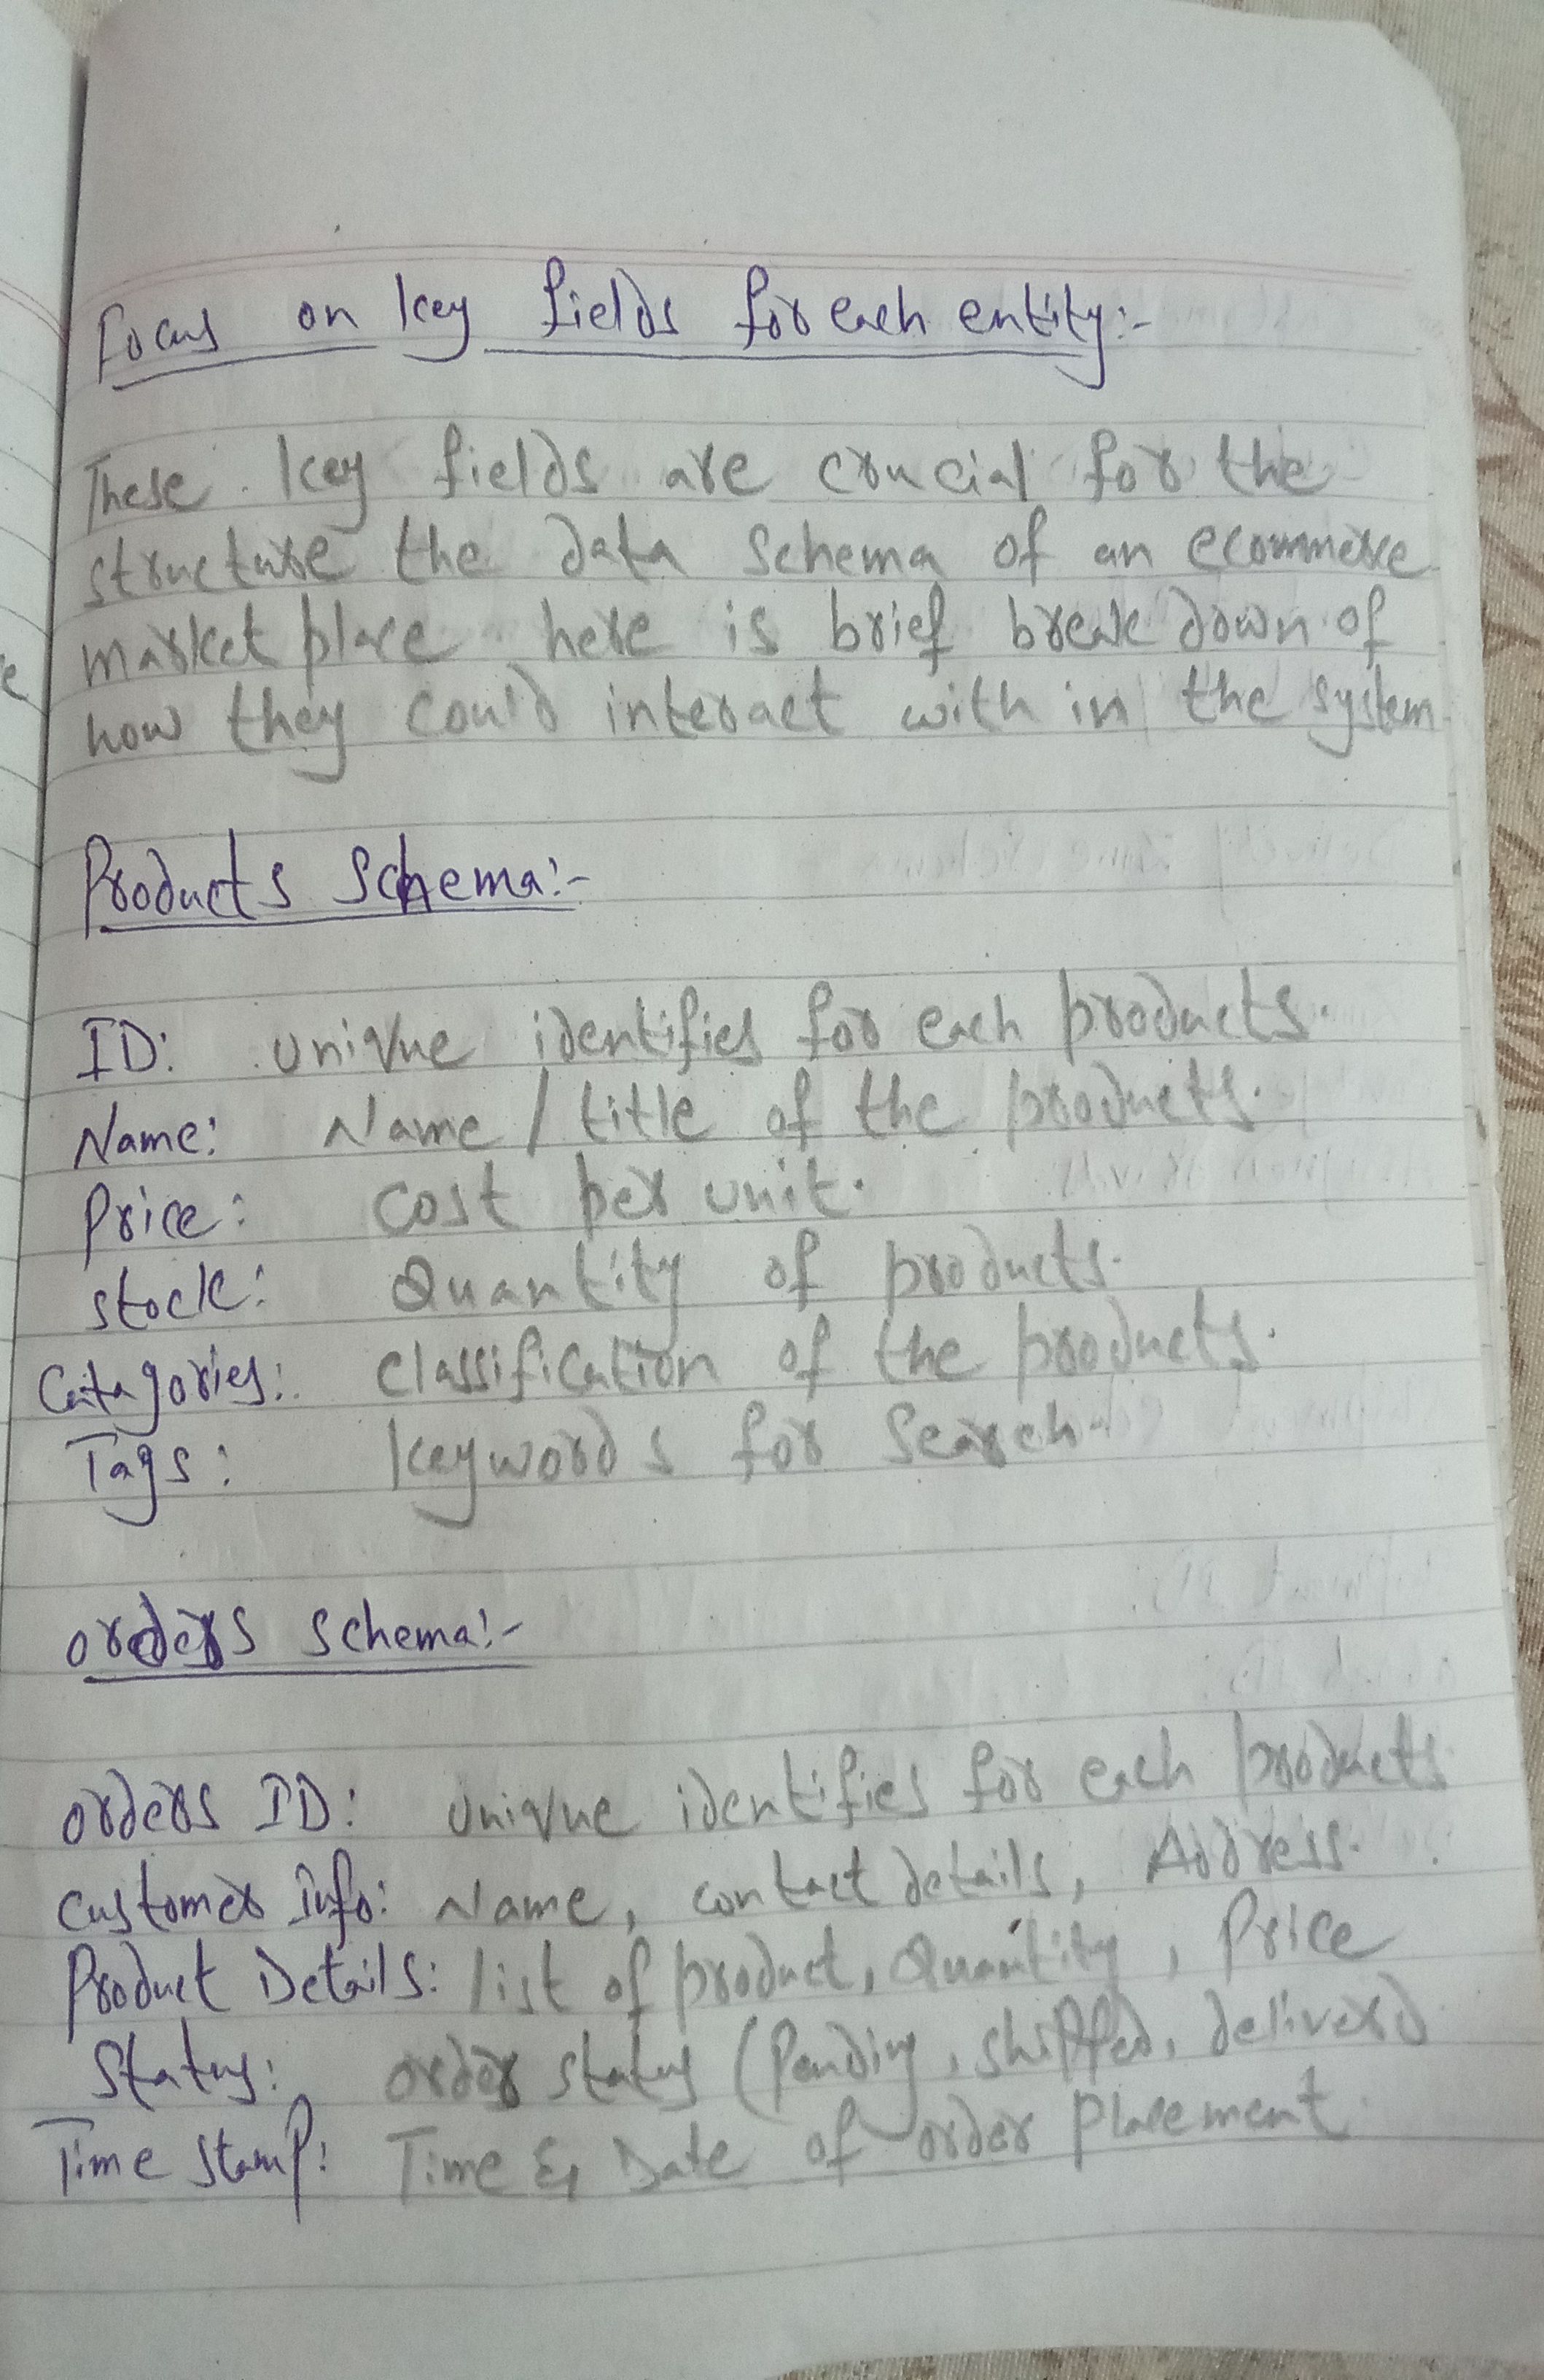 Focus on key fields for each entity:-
These key fields are crucial for the
structure the data schema of an ecommerce
market place here is brief break down of
how they could interact with in the system
Products Schema:-
ID: unique identifies for each products.
Name: Name / title of the products.
Price: cost per unit.
stock: Quantity of products.
Catagories: classification of the products.
Tags: keywords for Search.
orders schema:-
orders ID: unique identifies for each products
customer Info: Name, contact details, Address.
Product Details: list of product, Quantity, Price
Status: order status (Pending, shipped, deliverd
Time stamp: Time & Date of order placement.